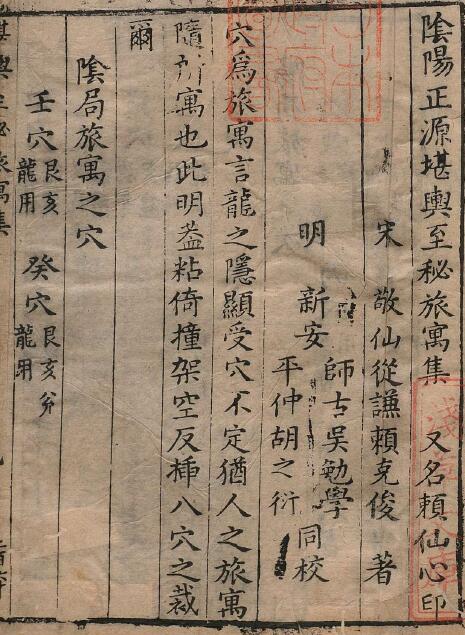 陰陽正源堪輿至秘旅寓集 又名賴仙心印
宋 敬仙從謙賴克俊 著
師古吳勉學
明 新安 同校
平仲胡之衍
穴為旅寓言龍之隱顯受穴不定猶人之旅寓
隨所寓也此明蓋粘倚撞架空反揷八穴之裁
爾
陰局旅寓之穴
壬穴艮亥龍用 癸穴艮亥 龍用